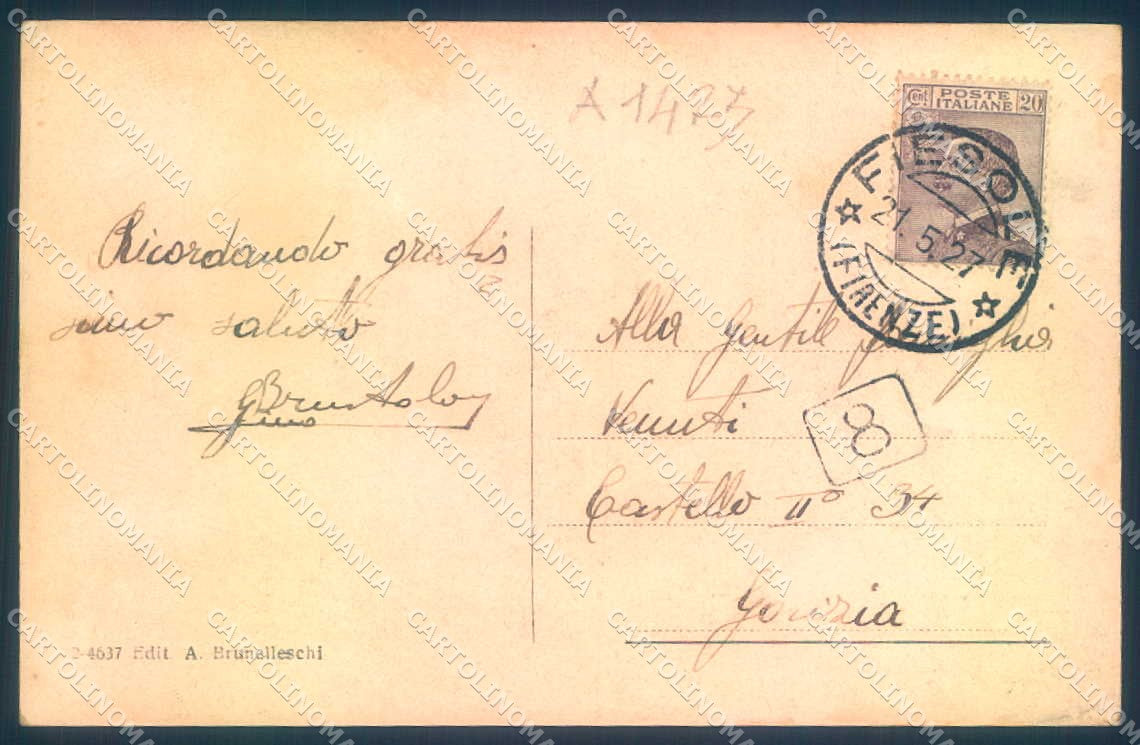 A 1473
Cent POSTE ITALIANE 20
FIESOLE
21. 5. 27
(FIRENZE)
Ricordando gratis
simo saluto
Gino
Alla Gentile famiglia
Venuti
8
Castello n° 34
Gorizia
2-4637 Edit. A. Brunelleschi
CARTOLINOMANIA